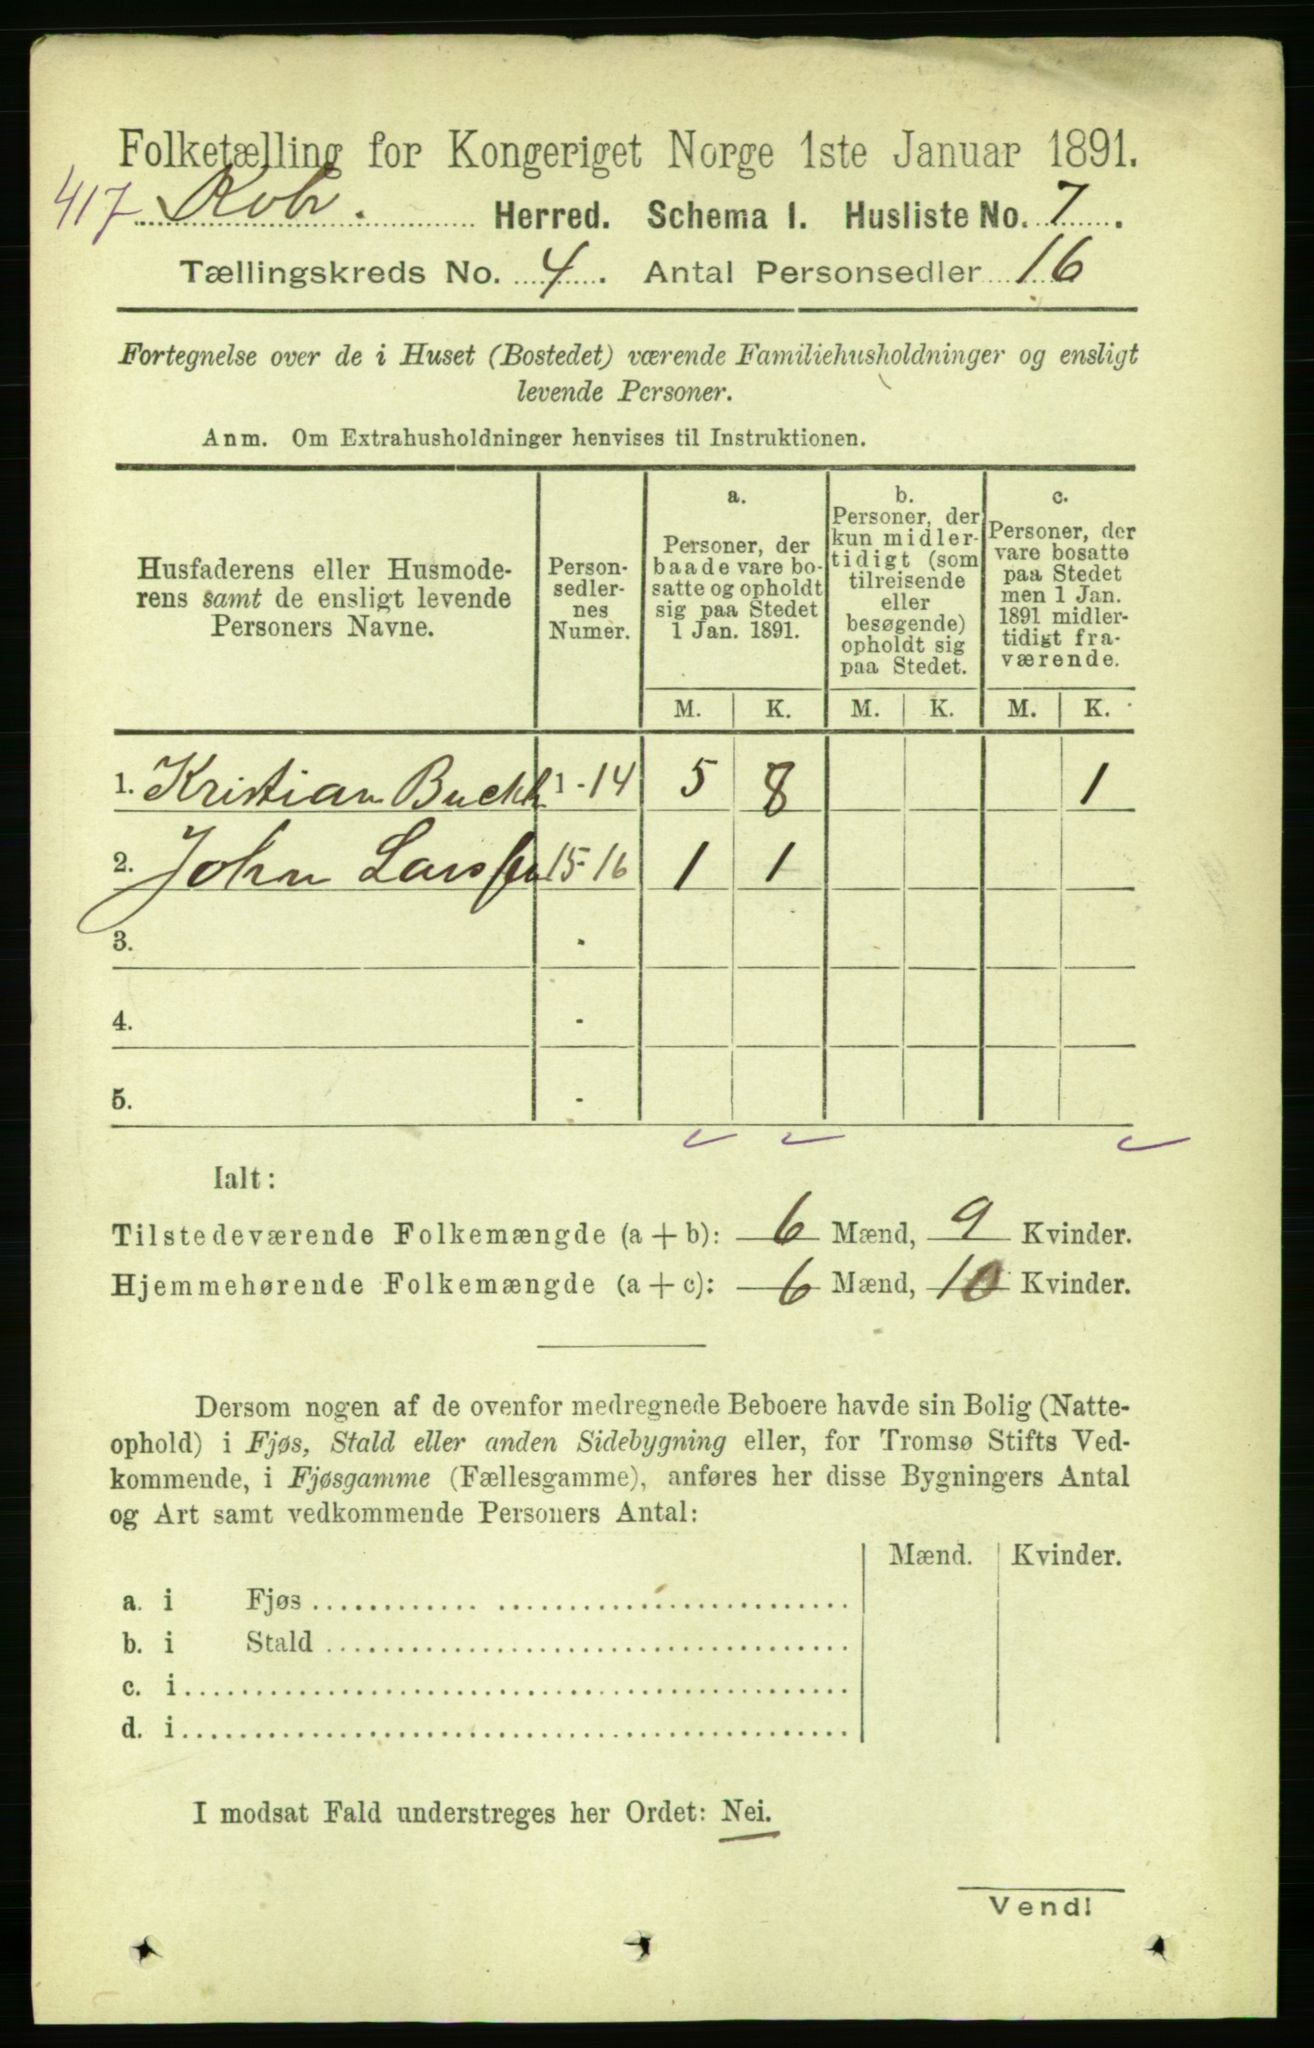 Folketælling for Kongeriget Norge 1ste Januar 1891.
417 Herred. Schema I. Husliste No. 7.
Tællingskreds No. 4. Antal Personsedler 16
Fortegnelse over de i Huset (Bostedet) værende Familiehusholdninger og ensligt
levende Personer.
Anm. Om Extrahusholdninger henvises til Instruktionen.
Husfaderens eller Husmode-
rens samt de ensligt levende
Personers Navne.
Person-
sedler-
nes
Numer.
a.
Personer, der
baade vare bo-
satte og opholdt
sig paa Stedet
1 Jan. 1891.
b.
Personer, der
kun midler-
tidigt (som
tilreisende
eller
besøgende)
opholdt sig
paa Stedet.
c.
Personer, der
vare bosatte
paa Stedet
men 1 Jan.
1891 midler-
tidigt fra-
værende.
M. K. M. K. M. K.
1. Kristian 1-14 5 8 1
2. John Larsen 15-16 1 1
3. -
4. -
5. -
Ialt:
Tilstedeværende Folkemængde (a + b): 6 Mænd, 9 Kvinder.
Hjemmehørende Folkemængde (a + c): 6 Mænd, 10 Kvinder.
Dersom nogen af de ovenfor medregnede Beboere havde sin Bolig (Natte-
ophold) i Fjøs, Stald eller anden Sidebygning eller, for Tromsø Stifts Ved-
kommende, i Fjøsgamme (Fællesgamme), anføres her disse Bygningers Antal
og Art samt vedkommende Personers Antal:
Mænd. Kvinder.
a. i Fjøs
b. i Stald
c. i
d. i
I modsat Fald understreges her Ordet: Nei.
Vend!